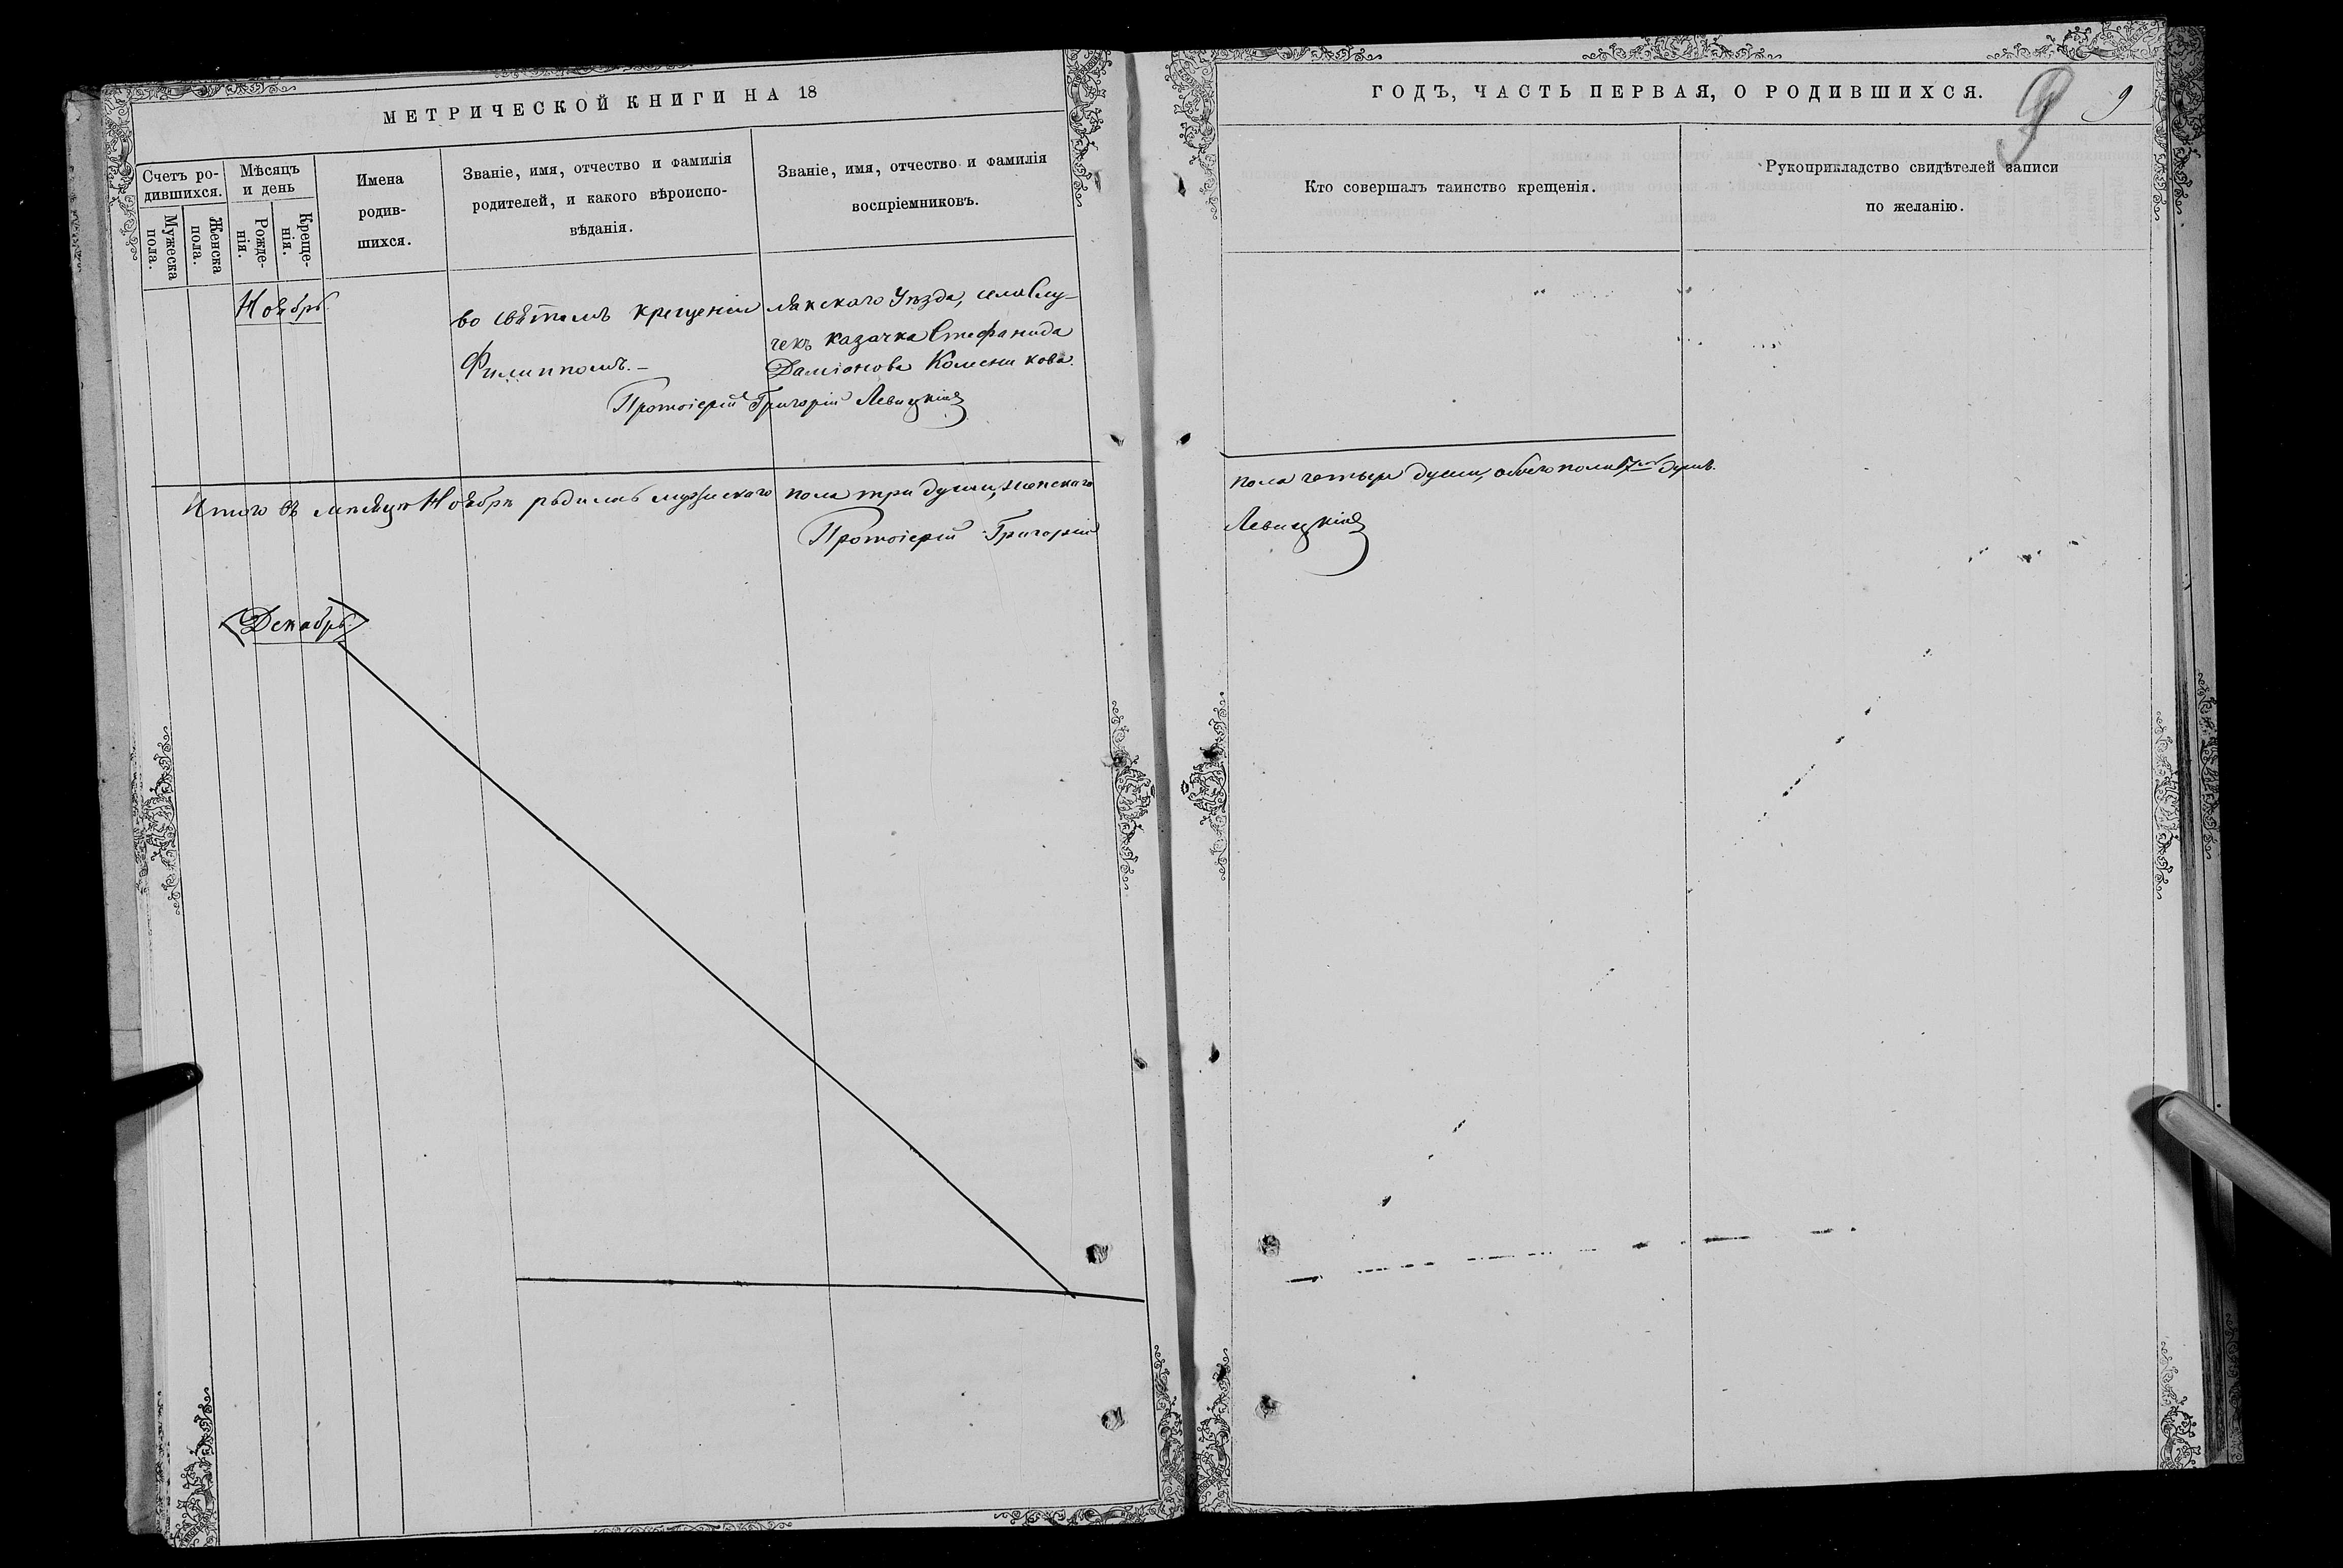 МЕТРИЧЕСКОЙ КНИГИ НА 18
Счетъ ро-
дившихся.
Мужеска
пола.
Женска
пола.
Мѣсяцъ
и день
Рожде-
нія.
Креще-
нія.
Имена
родив-
шихся.
Званіе, имя, отчество и фамилія
родителей, и какого вѣроиспо-
вѣданія.
Званіе, имя, отчество и фамилія
воспріемниковъ.
Ноябрь
во святомъ крещеніи
Филиппомъ.—
Уѣзда, села
казачка Стефанида
Даміанова
Протоіерей Григорій Левицкій
Итого въ мѣсяцѣ Ноябрѣ родилось мужескаго пола три души, женскаго
Протоіерей Григорій
Декабрь
ГОДЪ, ЧАСТЬ ПЕРВАЯ, О РОДИВШИХСЯ.
9
Кто совершалъ таинство крещенія.
Рукоприкладство свидѣтелей записи
по желанію.
пола четыре души, обоего пола 7 душъ.
Левицкій